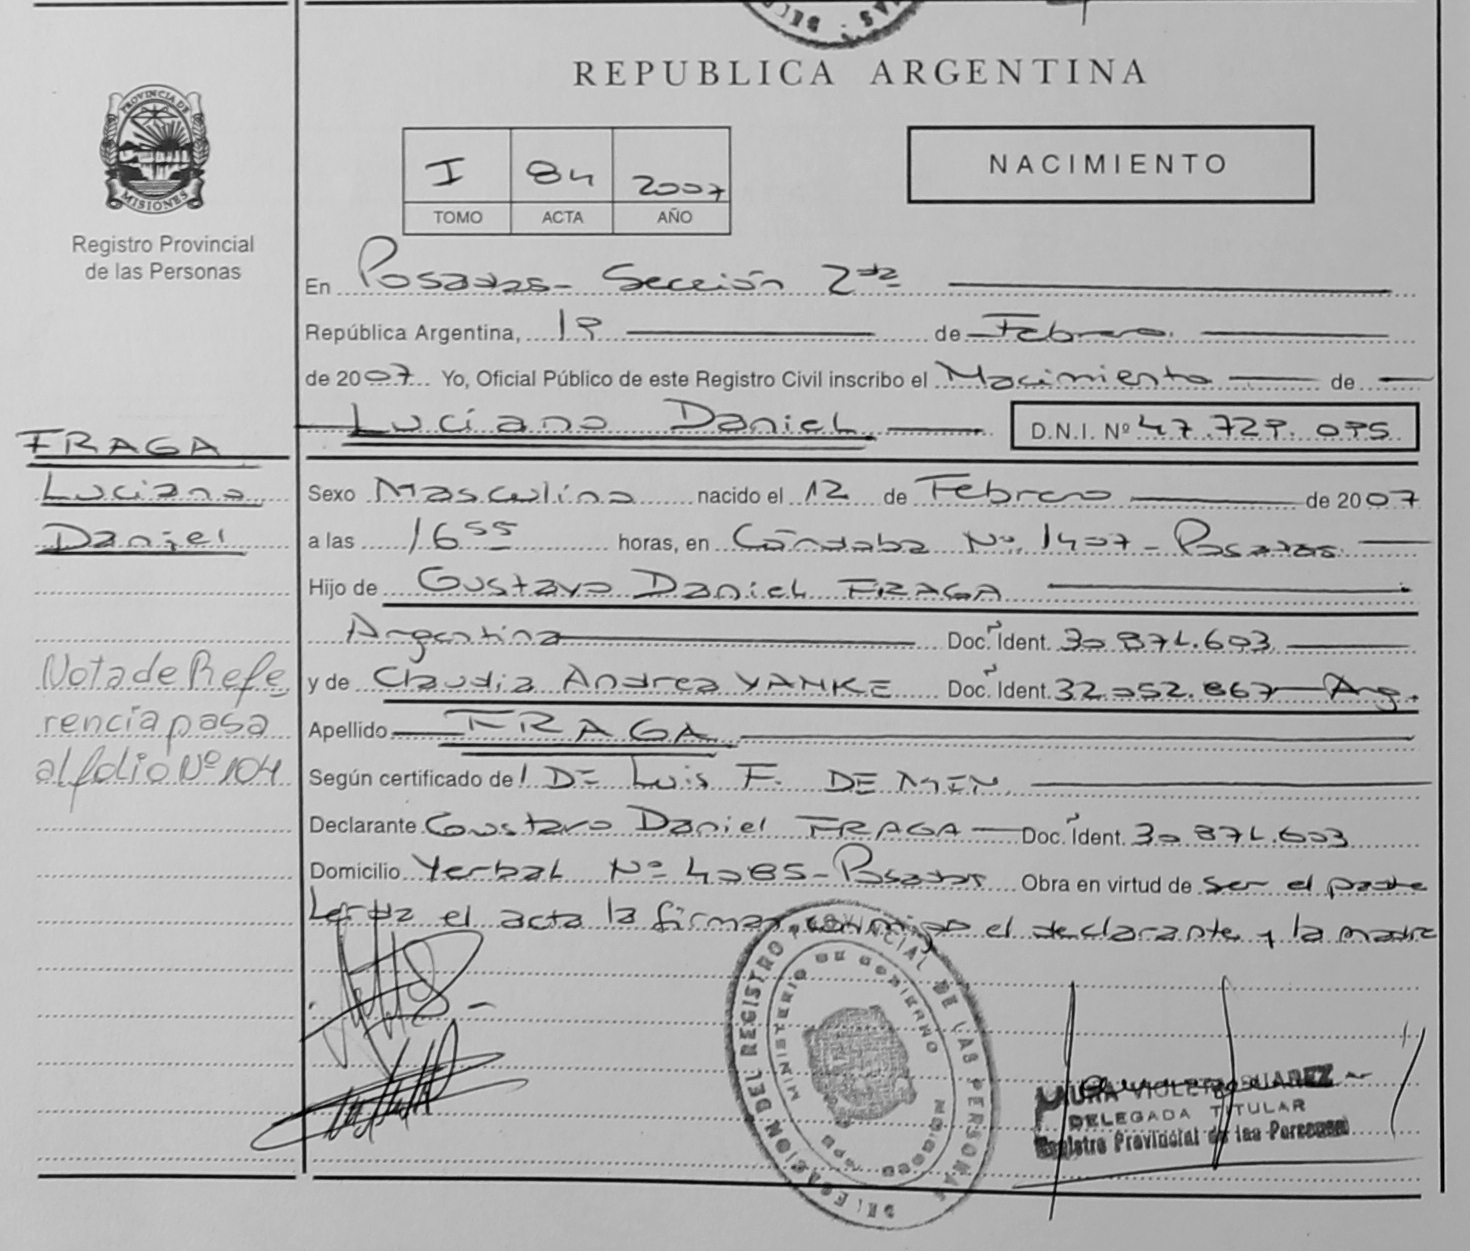 REPUBLICA ARGENTINA
PROVINCIA DE
MISIONES
Registro Provincial
de las Personas
I 84 2007
TOMO ACTA AÑO
NACIMIENTO
En Posadas - Sección 2da
República Argentina, 19 de Febrero
de 2007 Yo, Oficial Público de este Registro Civil inscribo el Nacimiento de
Luciano Daniel D.N.I. Nº 47.729.095
FRAGA
Luciano
Daniel
Sexo Masculino nacido el 12 de Febrero de 2007
a las 16 55 horas, en Córdoba Nº 1407 - Posadas
Hijo de Gustavo Daniel FRAGA
Argentino Doc. Ident. 30.871.603
y de Claudia Andrea YANKE Doc. Ident. 32.052.867 Arg.
Apellido FRAGA
Según certificado de Luis F. DE MIN
Declarante Gustavo Daniel FRAGA Doc. Ident. 30.871.603
Domicilio Yerbal Nº 4085 - Posadas Obra en virtud de ser el padre
Leída el acta la firman conmigo el declarante y la madre
Nota de Refe
rencia pasa
al folio Nº 104
DELEGACION DEL REGISTRO PROVINCIAL DE LAS PERSONAS
MINISTERIO DE GOBIERNO
VIOLETA SUAREZ
DELEGADA TITULAR
Registro Provincial de las Personas